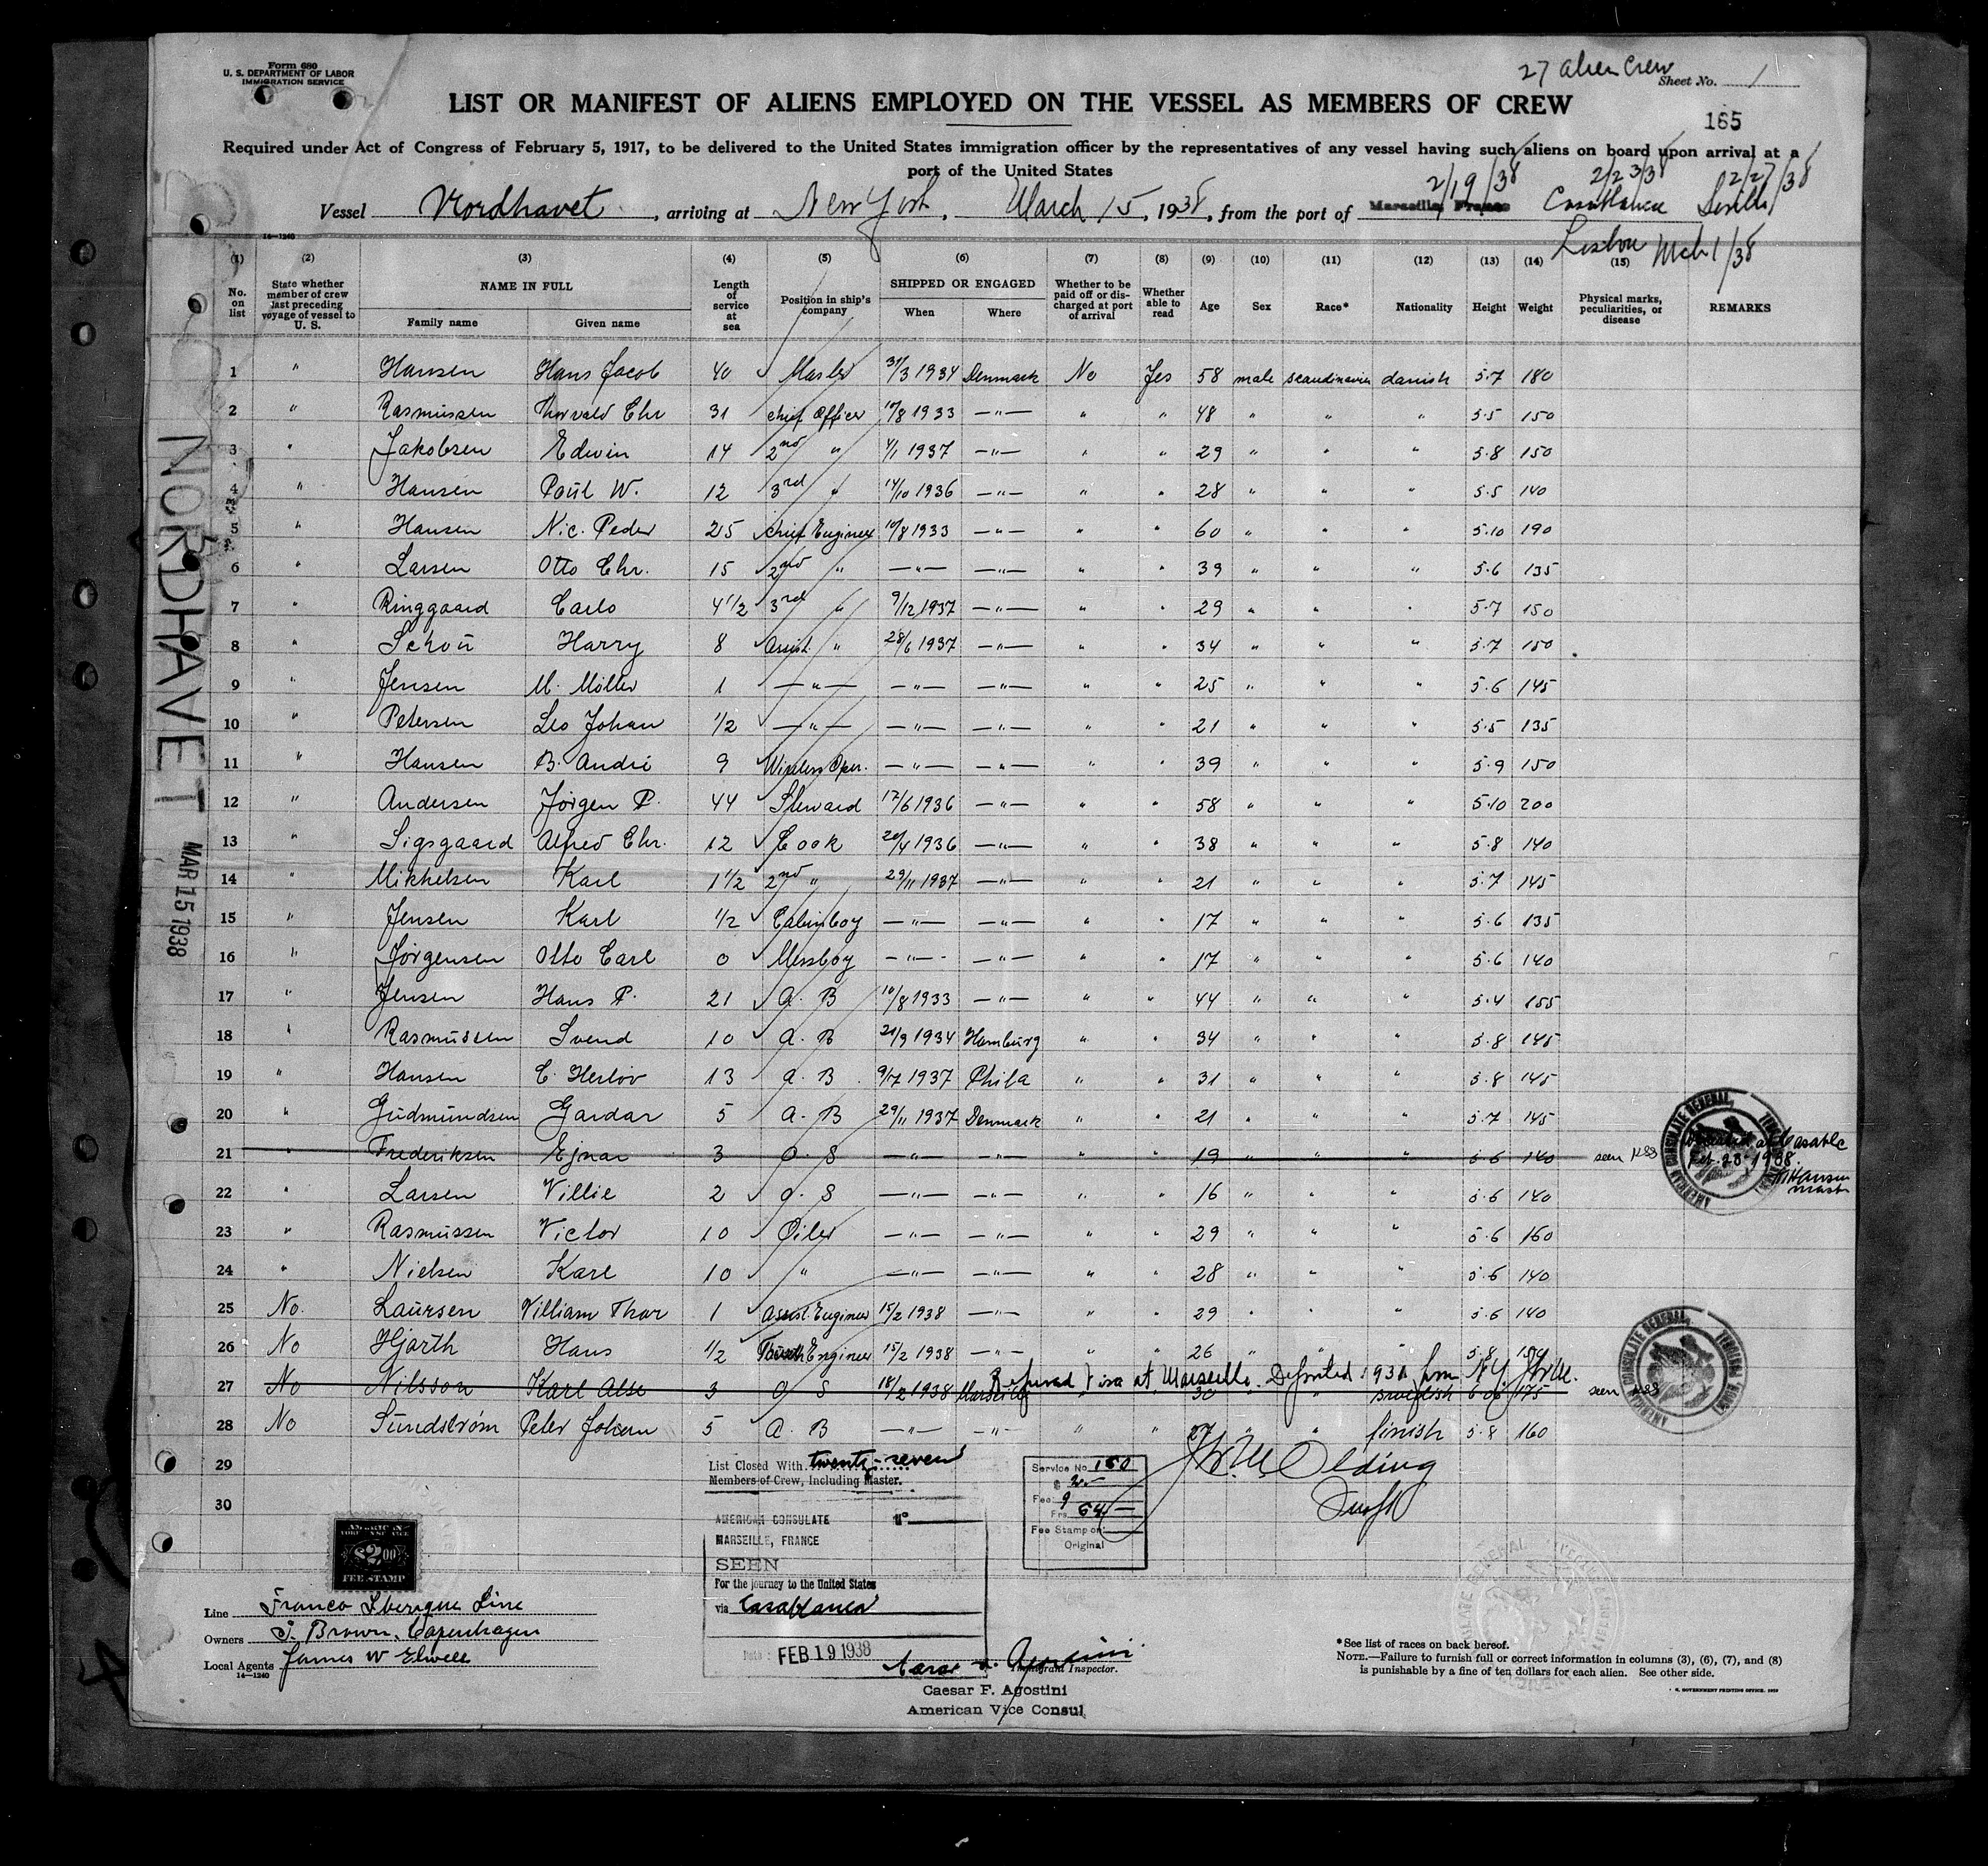 Form 680
U. S. DEPARTMENT OF LABOR
IMMIGRATION SERVICE
27 alien crew
Sheet No. 1
LIST OR MANIFEST OF ALIENS EMPLOYED ON THE VESSEL AS MEMBERS OF CREW
165
Required under Act of Congress of February 5, 1917, to be delivered to the United States immigration officer by the representatives of any vessel having such aliens on board upon arrival at a
port of the United States
2/19/38 2/23/38 2/27/38
Vessel Nordhavet, arriving at New York, March 15, 1938, from the port of Marseille, France Casablanca Seville
Lisbon Mch 1/38
14—1240
(1) (2) (3) (4) (5) (6) (7) (8) (9) (10) (11) (12) (13) (14) (15)
No. on list
State whether member of crew last preceding voyage of vessel to U. S.
NAME IN FULL
Family name
Given name
Length of service at sea
Position in ship's company
SHIPPED OR ENGAGED
When
Where
Whether to be paid off or discharged at port of arrival
Whether able to read
Age
Sex
Race*
Nationality
Height
Weight
Physical marks, peculiarities, or disease
REMARKS
1 " Hansen Hans Jacob 40 Master 31/3 1934 Denmark No Yes 58 male scandinavien danish 5.7 180
2 " Rasmussen Thorvald Chr 31 chief Officer 10/8 1933 —"— " " 48 " " " 5.5 150
3 " Jakobsen Edwin 14 2nd " 4/1 1937 —"— " " 29 " " " 5.8 150
4 " Hansen Poul W. 12 3rd " 14/10 1936 —"— " " 28 " " " 5.5 140
5 " Hansen Nic. Peder 25 chief Engineer 10/8 1933 —"— " " 60 " " " 5.10 190
6 " Larsen Otto Chr. 15 2nd " —"— —"— " " 39 " " " 5.6 135
7 " Ringgaard Carlo 4 1/2 3rd " 9/12 1937 —"— " " 29 " " " 5.7 150
8 " Schou Harry 8 Assist. " 28/6 1937 —"— " " 34 " " " 5.7 150
9 " Jensen M. Möller 1 —"— —"— —"— " " 25 " " " 5.6 145
10 " Petersen Leo Johan 1/2 —"— —"— —"— " " 21 " " " 5.5 135
11 " Hansen B. André 9 Wireless Oper. —"— —"— " " 39 " " " 5.9 150
12 " Andersen Jörgen P. 44 Steward 17/6 1936 —"— " " 58 " " " 5.10 200
13 " Sigsgaard Alfred Chr. 12 Cook 20/4 1936 —"— " " 38 " " " 5.8 140
14 " Mikkelsen Karl 1 1/2 2nd " 29/11 1937 —"— " " 21 " " " 5.7 145
15 " Jensen Karl 1/2 Cabinboy —"— —"— " " 17 " " " 5.6 135
16 " Jørgensen Otto Carl 0 Messboy —"— —"— " " 17 " " " 5.6 140
17 " Jensen Hans P. 21 A. B 10/8 1933 —"— " " 44 " " " 5.4 155
18 " Rasmussen Svend 10 A. B 21/9 1934 Hamburg " " 34 " " " 5.8 145
19 " Hansen C. Herlöv 13 A. B 9/7 1937 Phila " " 31 " " " 5.8 145
20 " Gudmundsen Gardar 5 A. B 29/11 1937 Denmark " " 21 " " " 5.7 145
21 " Frederiksen Ejnar 3 O. S —"— —"— " " 19 " " " 5.6 140 seen at Casabl. Feb. 23. 1938. Hansen master
AMERICAN CONSULATE GENERAL
22 " Larsen Villie 2 O. S —"— —"— " " 16 " " " 5.6 140
23 " Rasmussen Victor 10 Oiler —"— —"— " " 29 " " " 5.6 160
24 " Nielsen Karl 10 " —"— —"— " " 28 " " " 5.6 140
25 No. Laursen William Thor 1 Assist. Engineer 15/2 1938 —"— " " 29 " " " 5.6 140
26 No Hjorth Hans 1/2 Engineer 15/2 1938 —"— " " 26 " " " 5.8
Refused Visa at Marseille. Deported 193 from N.Y.
27 No Nilsson Karl 3 O S 18/2 1938 Marseille 30 " " swedish 6.00 175 seen
AMERICAN CONSULATE GENERAL
28 No Sundstrøm Peter Johan 5 A. B —"— —"— " " 27 " " finish 5.8 160
29
30
List Closed With twenty-seven
Members of Crew, Including Master.
AMERICAN CONSULATE
MARSEILLE, FRANCE
SEEN
For the journey to the United States
via Casablanca
Date: FEB 19 1938
Service No. 150
Fee
Frs. 64—
Fee Stamp on
Original
AMERICAN
$2.00
FEE STAMP
Line Franco Iberique Line
Owners J. Brown, Copenhagen
Local Agents James W Elwell
14—1240
Immigrant Inspector.
Caesar F. Agostini
American Vice Consul
*See list of races on back hereof.
NOTE.—Failure to furnish full or correct information in columns (3), (6), (7), and (8)
is punishable by a fine of ten dollars for each alien. See other side.
NORDHAVET MAR 15 1938